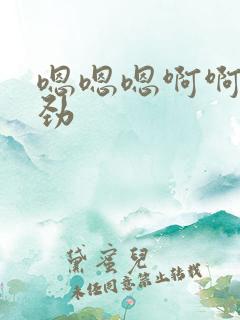 嗯嗯嗯啊啊
劲
黛蜜儿
未经同意禁止转载